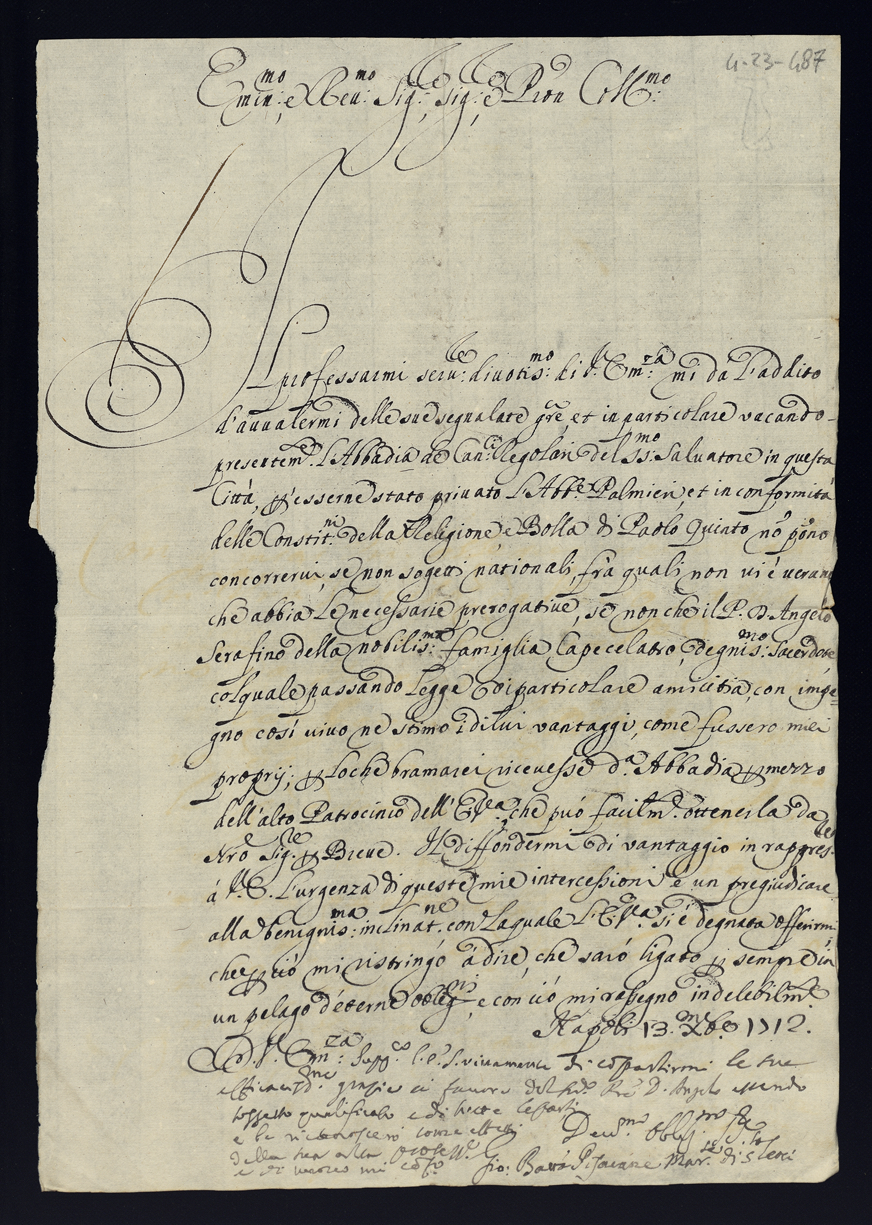 4-23-487
Emin:mo e Reu:mo Sig:re, Sig:re e Pron Coll:mo
Il professarmi seru:le diuotis:mo di V. Em:za mi da l'addito
d'auualermi delle sue segnalate grē, et in particolare vacando-
presentem.te l'Abbadia de Can:ci Regolari del ss:mo Saluatore in questa
Città, p esserne stato priuato l'Abb.e Palmieri, et in conformità
delle Constit:ni della Religione, e Bolla di Paolo Quinto nō pōno
concorrerui, se non sogetti nationali, frà quali non ui è uerun
che abbia le necessarie prerogatiue, se non che il P. D. Angelo
Serafino della nobilis:ma famiglia Capecelatro, degnis:mo Sacerdote
col quale passando legge di particolare amicitia, con impe-
gno così uiuo ne stimo i di lui vantaggi, come fussero miei
proprij; p lo che bramarei riceuesse d.a Abbadia p mezzo
dell'alto Patrocinio dell'E.V.ra, che può facilm.te ottenerla da
Nrō Sig.re p Breue. Il diffondermi di vantaggio in rappres.le
à V. E. l'urgenza di queste mie intercessioni è un pregiudicare
alla benignis:ma inclinat:ne con la quale l'E.V.ra si è degnata offerirmi,
che p ciò mi ristringo à dire, che sarò ligato p sempre in
un pelago d'eterne oblig:ni, e con ciò mi rasegno indelebilm.te
Napoli 13. Xbre 1712.
D. V. Em:za Supp.co l'E.V. viuamente di compartirmi le sue
efficaciss.me grazie in fauore del sud.o Prē D. Angelo essendo
soggetto qualificato e di tutte le parti
e le riconoscerò come effetti
della sua alta
e di nuouo mi
Deu.mo Oblig.mo
Gio: Batta Pisacane Mar.se di S.